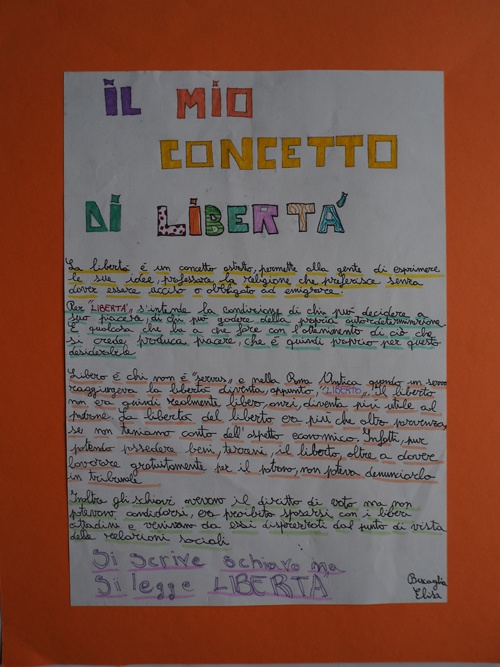 IL MIO
CONCETTO
DI LIBERTA'
La libertà è un concetto astratto, permette alla gente di esprimere
le sue idee, professare la religione che preferisce senza
dover essere ucciso o obbligato ad emigrare.
Per "LIBERTA'" s'intende la condizione di chi può decidere a
suo piacere, di chi può godere della propria autodeterminazione.
È qualcosa che ha a che fare con l'ottenimento di ciò che
si crede produca piacere, che è quindi proprio per questo
desiderabile.
Libero è chi non è "servus", e nella Roma Antica quando un servo
raggiungeva la libertà diventa, appunto, "LIBERTO", il liberto
non era quindi realmente libero, anzi, diventa più utile al
padrone. La libertà del liberto era più che altro parvenza,
se non teniamo conto dell'aspetto economico. Infatti, pur
potendo possedere beni, terreni, il liberto, oltre a dover
lavorare gratuitamente per il patrono, non poteva denunciarlo
in tribunale.
Inoltre gli schiavi avevano il diritto di voto ma non
potevano candidarsi, era proibito sposarsi con i liberi
cittadini e venivano da essi disprezzati dal punto di vista
delle relazioni sociali
Si scrive schiavo ma
Si legge LIBERTA'
Elisa